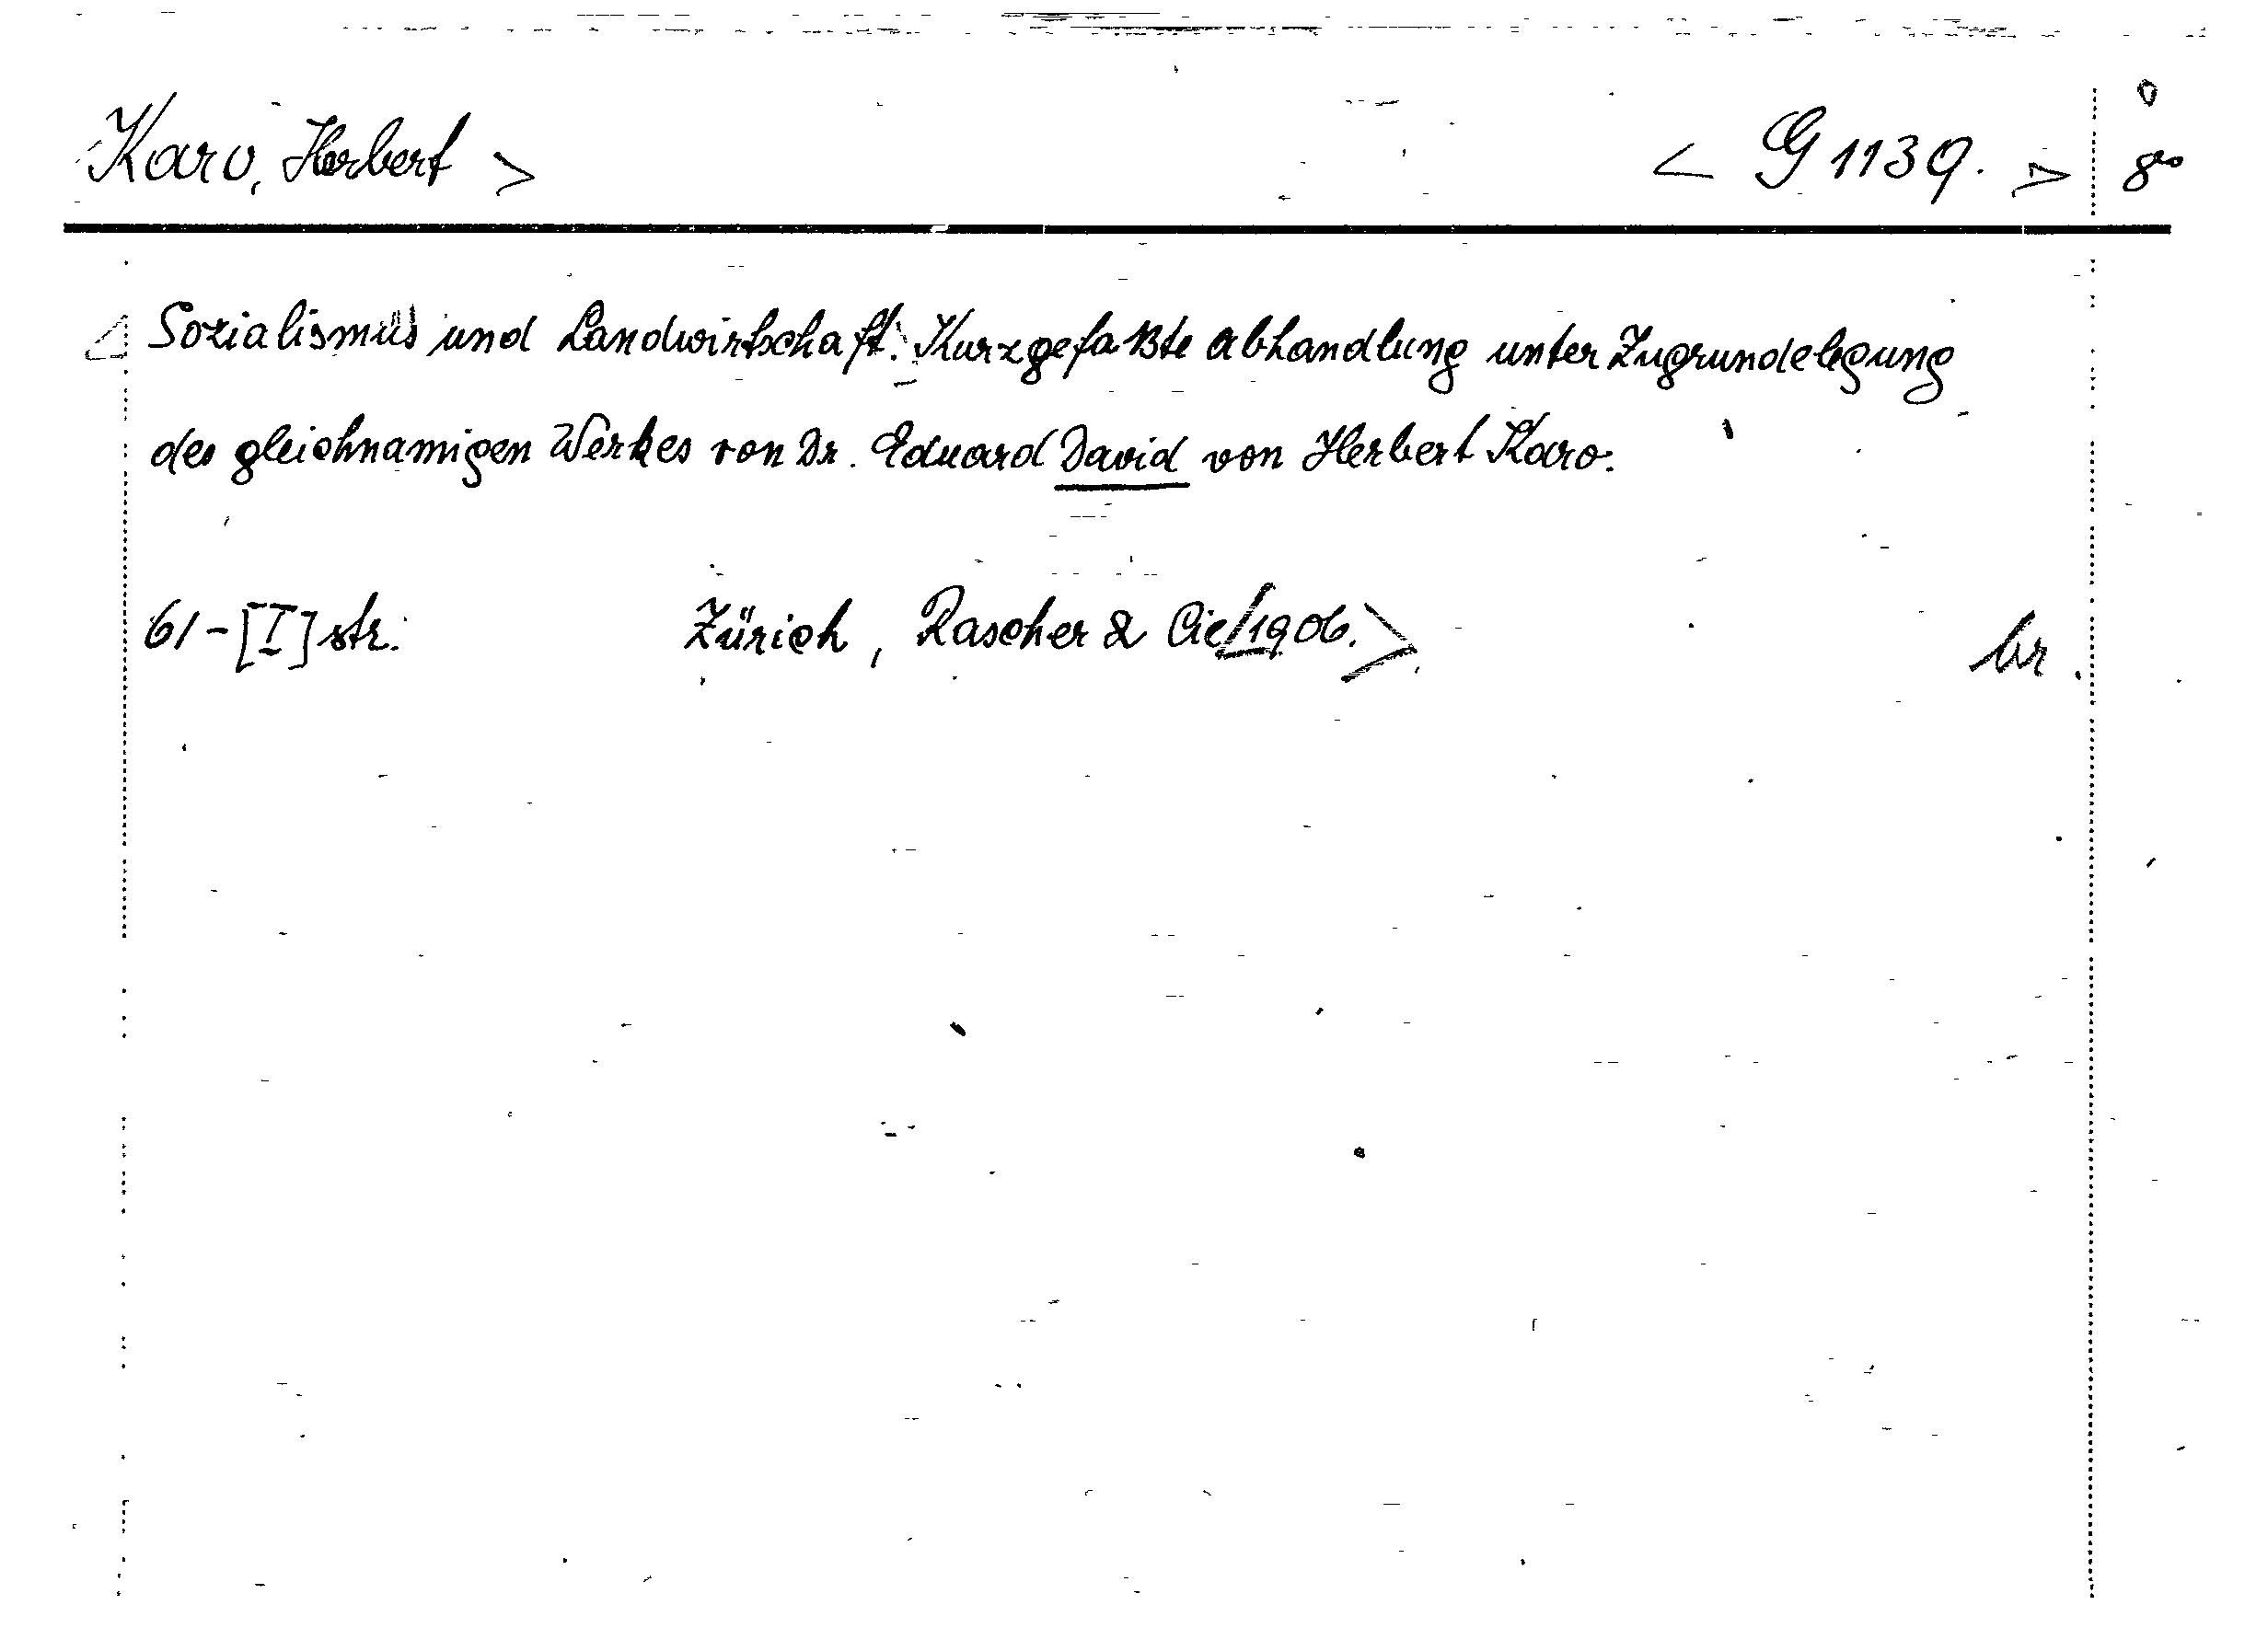 Karo, Herbert > < G 1139. > 8°
Sozialismus und Landwirtschaft. Kurzgefaßte Abhandlung unter Zugrundelegung
des gleichnamigen Werkes von Dr. Eduard David von Herbert Karo.
61-[I] str. Zürich, Rascher & Cie 1906. > br.